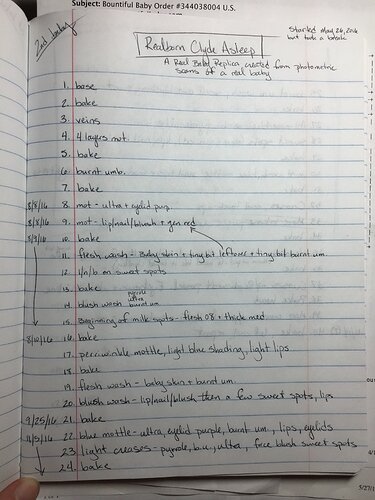 Subject: Bountiful Baby Order #344038004 U.S.
2nd baby
Started May 26, 2016
but took a break
Realborn Clyde Asleep
A Real Baby Replica created from photometric
scans of a real baby
1. base
2. bake
3. veins
4. 4 layers mot.
5. bake
6. burnt umb.
7. bake
8/8/16 8. mot - ultra + eyelid purp.
8/8/16 9. mot - lip/nail/blush + gen red
8/9/16 10. bake
11. flesh wash - Baby skin + tiny bit leftover + tiny bit burnt um.
12. l/n/b on sweat spots
13. bake
14. blush wash pyrole ultra burnt um
15. Beginning of milk spots - flesh 08 + thick med.
8/10/16 16. bake
17. periwinkle mottle, light blue shading, light lips
18. bake
19. flesh wash - baby skin + burnt um
20. blush wash - lip/nail/blush then a few sweet spots, lips
9/25/16 21. bake
11/5/16 22. blue mottle - ultra, eyelid purple, burnt um., lips, eyelids
23. light creases - pyrole, b.u., ultra, face blush sweet spots
24. bake
5/27/1